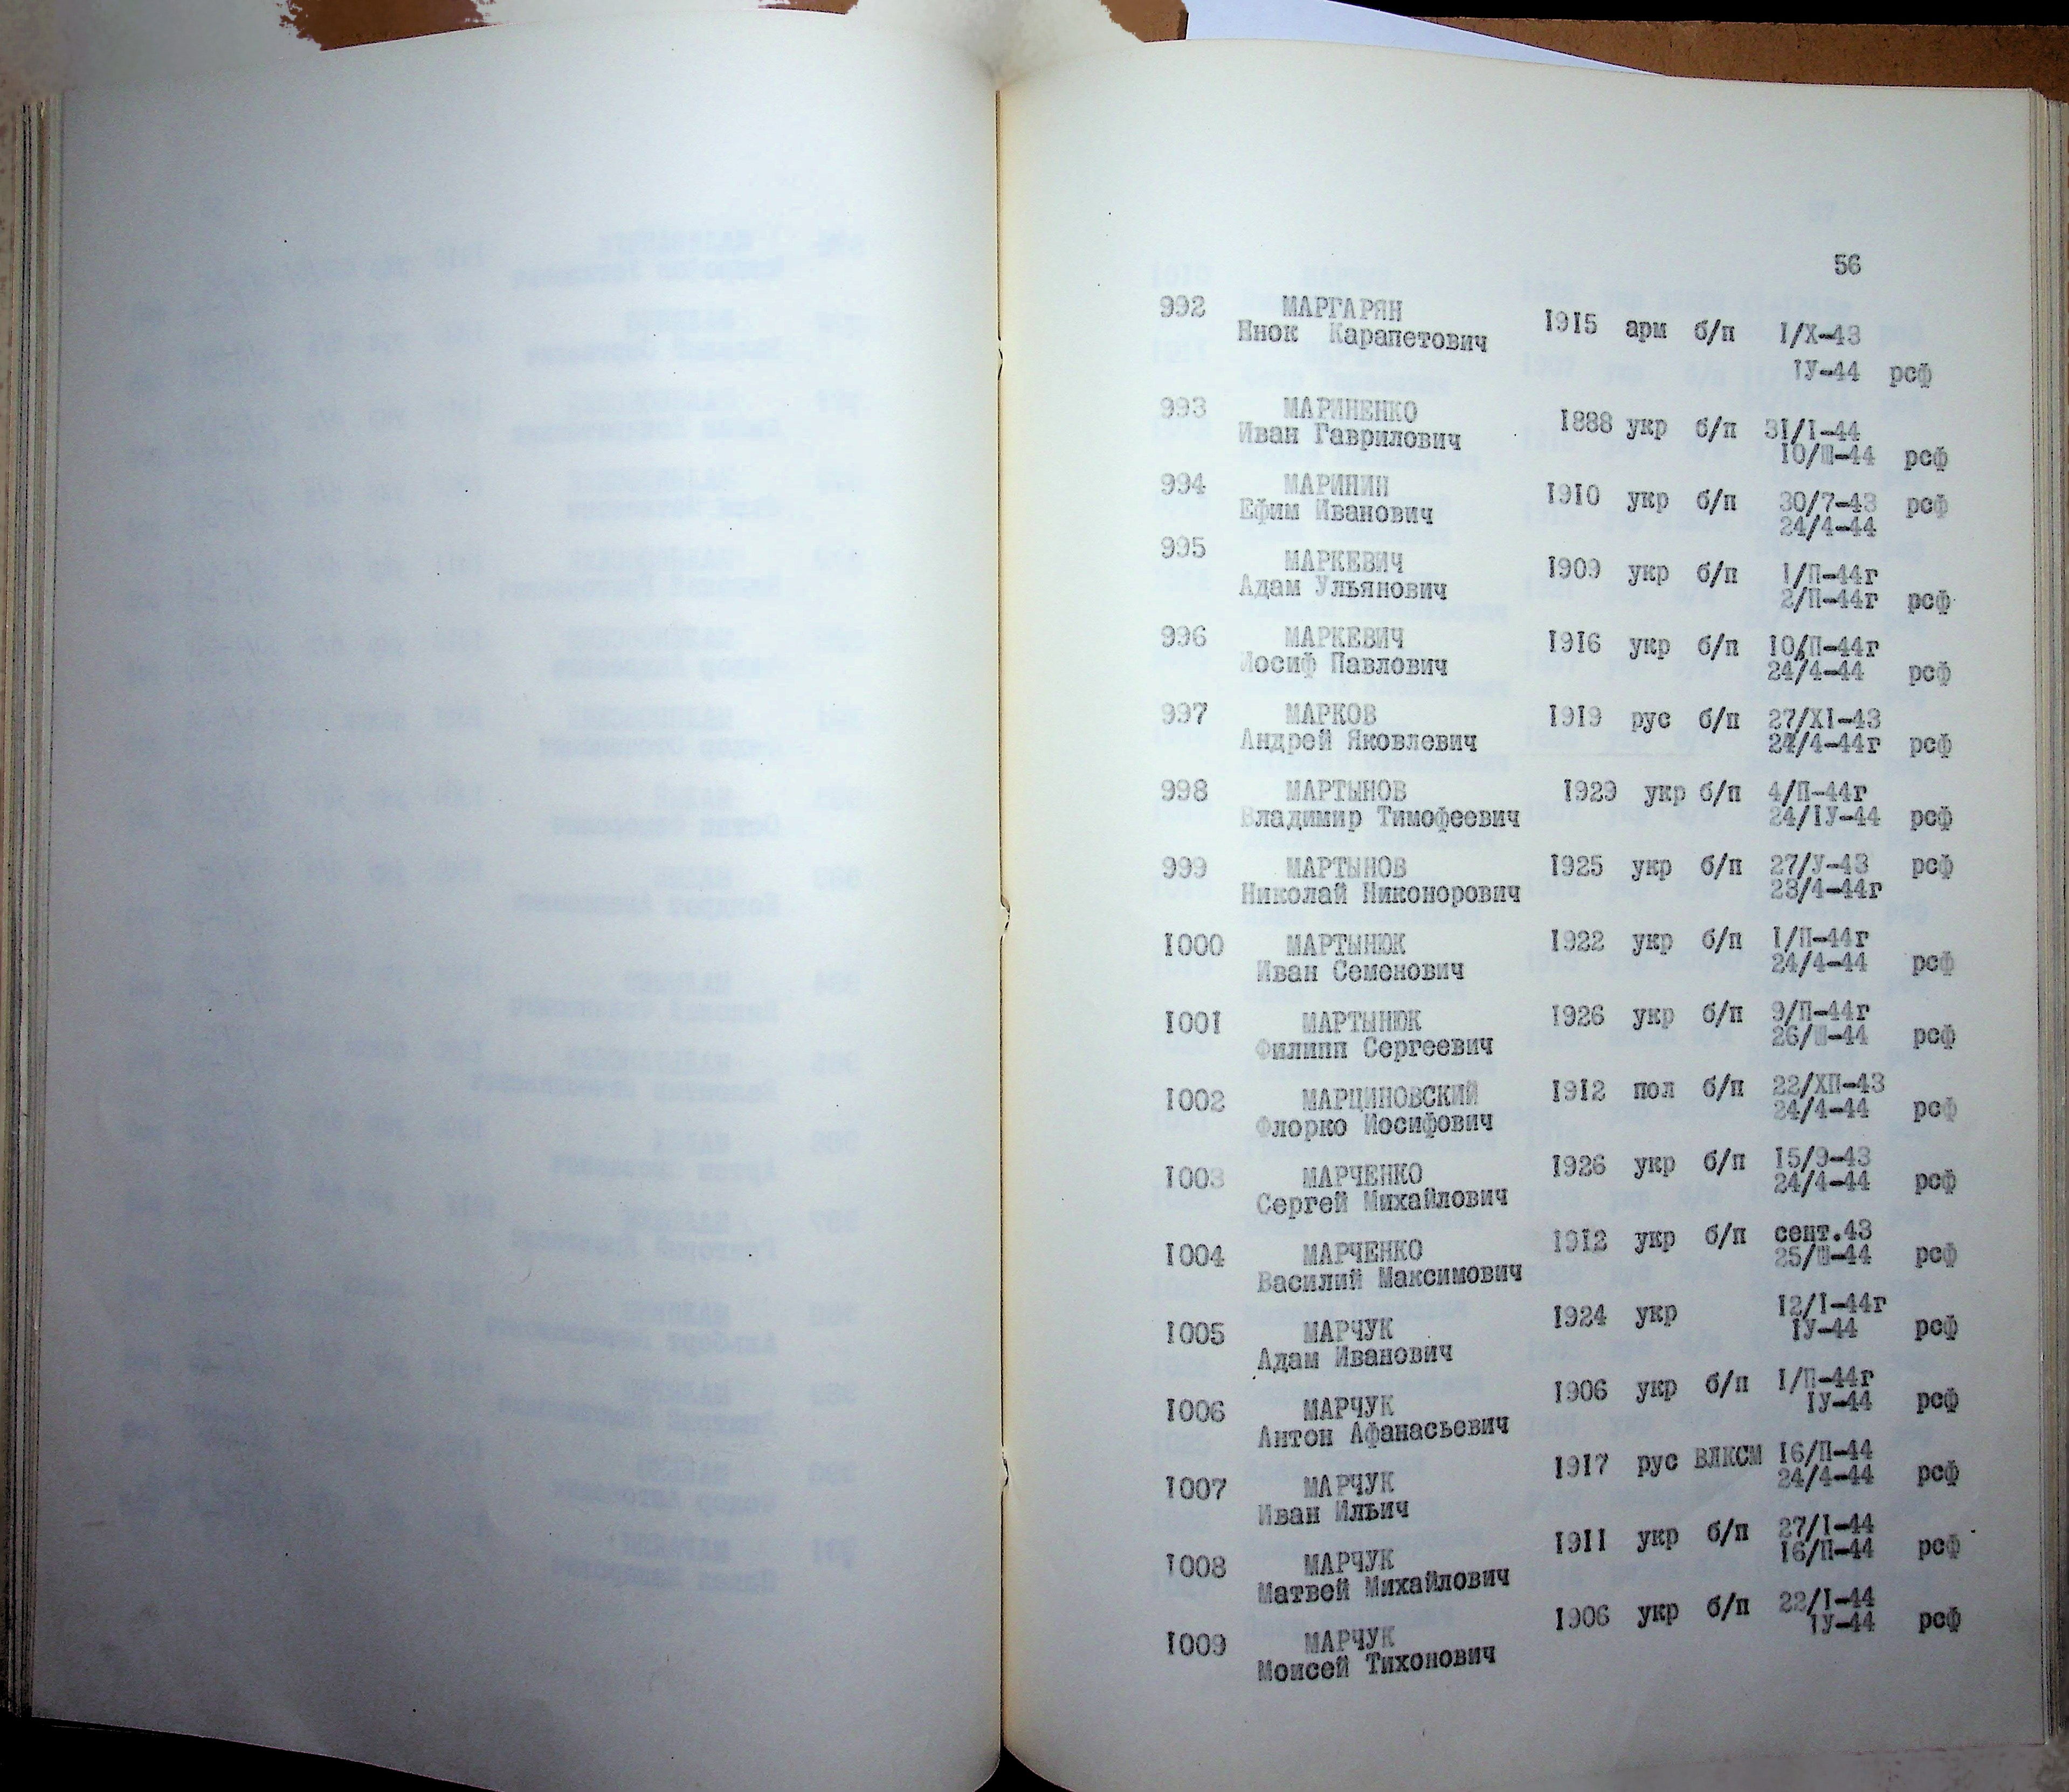 56
992 МАРГАРЯН 1915 арм б/п I/X-43
Енок Карапетович
IУ-44 рсф
993 МАРИНЕНКО 1888 укр б/п 31/I-44
Иван Гаврилович 10/Ш-44 рсф
994 МАРИНИН 1910 укр б/п 30/7-43 рсф
Ефим Иванович 24/4-44
995 МАРКЕВИЧ 1909 укр б/п 1/П-44г
Адам Ульянович 2/П-44г рсф
996 МАРКЕВИЧ 1916 укр б/п 10/П-44г
Иосиф Павлович 24/4-44 рсф
997 МАРКОВ 1919 рус б/п 27/XI-43
Андрей Яковлевич 24/4-44г рсф
998 МАРТЫНОВ 1929 укр б/п 4/П-44г
Владимир Тимофеевич 24/IУ-44 рсф
999 МАРТЫНОВ 1925 укр б/п 27/У-43 рсф
Николай Никонорович 23/4-44г
1000 МАРТЫНЮК 1922 укр б/п I/П-44г
Иван Семенович 24/4-44 рсф
1001 МАРТЫНЮК 1926 укр б/п 9/П-44г
Филипп Сергеевич 26/Ш-44 рсф
1002 МАРЦИНОВСКИЙ 1912 пол б/п 22/ХП-43
Флорко Иосифович 24/4-44 рсф
1003 МАРЧЕНКО 1926 укр б/п 15/9-43
Сергей Михайлович 24/4-44 рсф
1004 МАРЧЕНКО 1912 укр б/п сент.43
Василий Максимович 25/Ш-44 рсф
1005 МАРЧУК 1924 укр 12/I-44г
Адам Иванович IУ-44 рсф
1006 МАРЧУК 1906 укр б/п I/П-44г
Антон Афанасьевич IУ-44 рсф
1007 МАРЧУК 1917 рус ВЛКСМ 16/П-44
Иван Ильич 24/4-44 рсф
1008 МАРЧУК 1911 укр б/п 27/I-44
Матвей Михайлович 16/П-44 рсф
1009 МАРЧУК 1906 укр б/п 22/I-44
Моисей Тихонович IУ-44 рсф